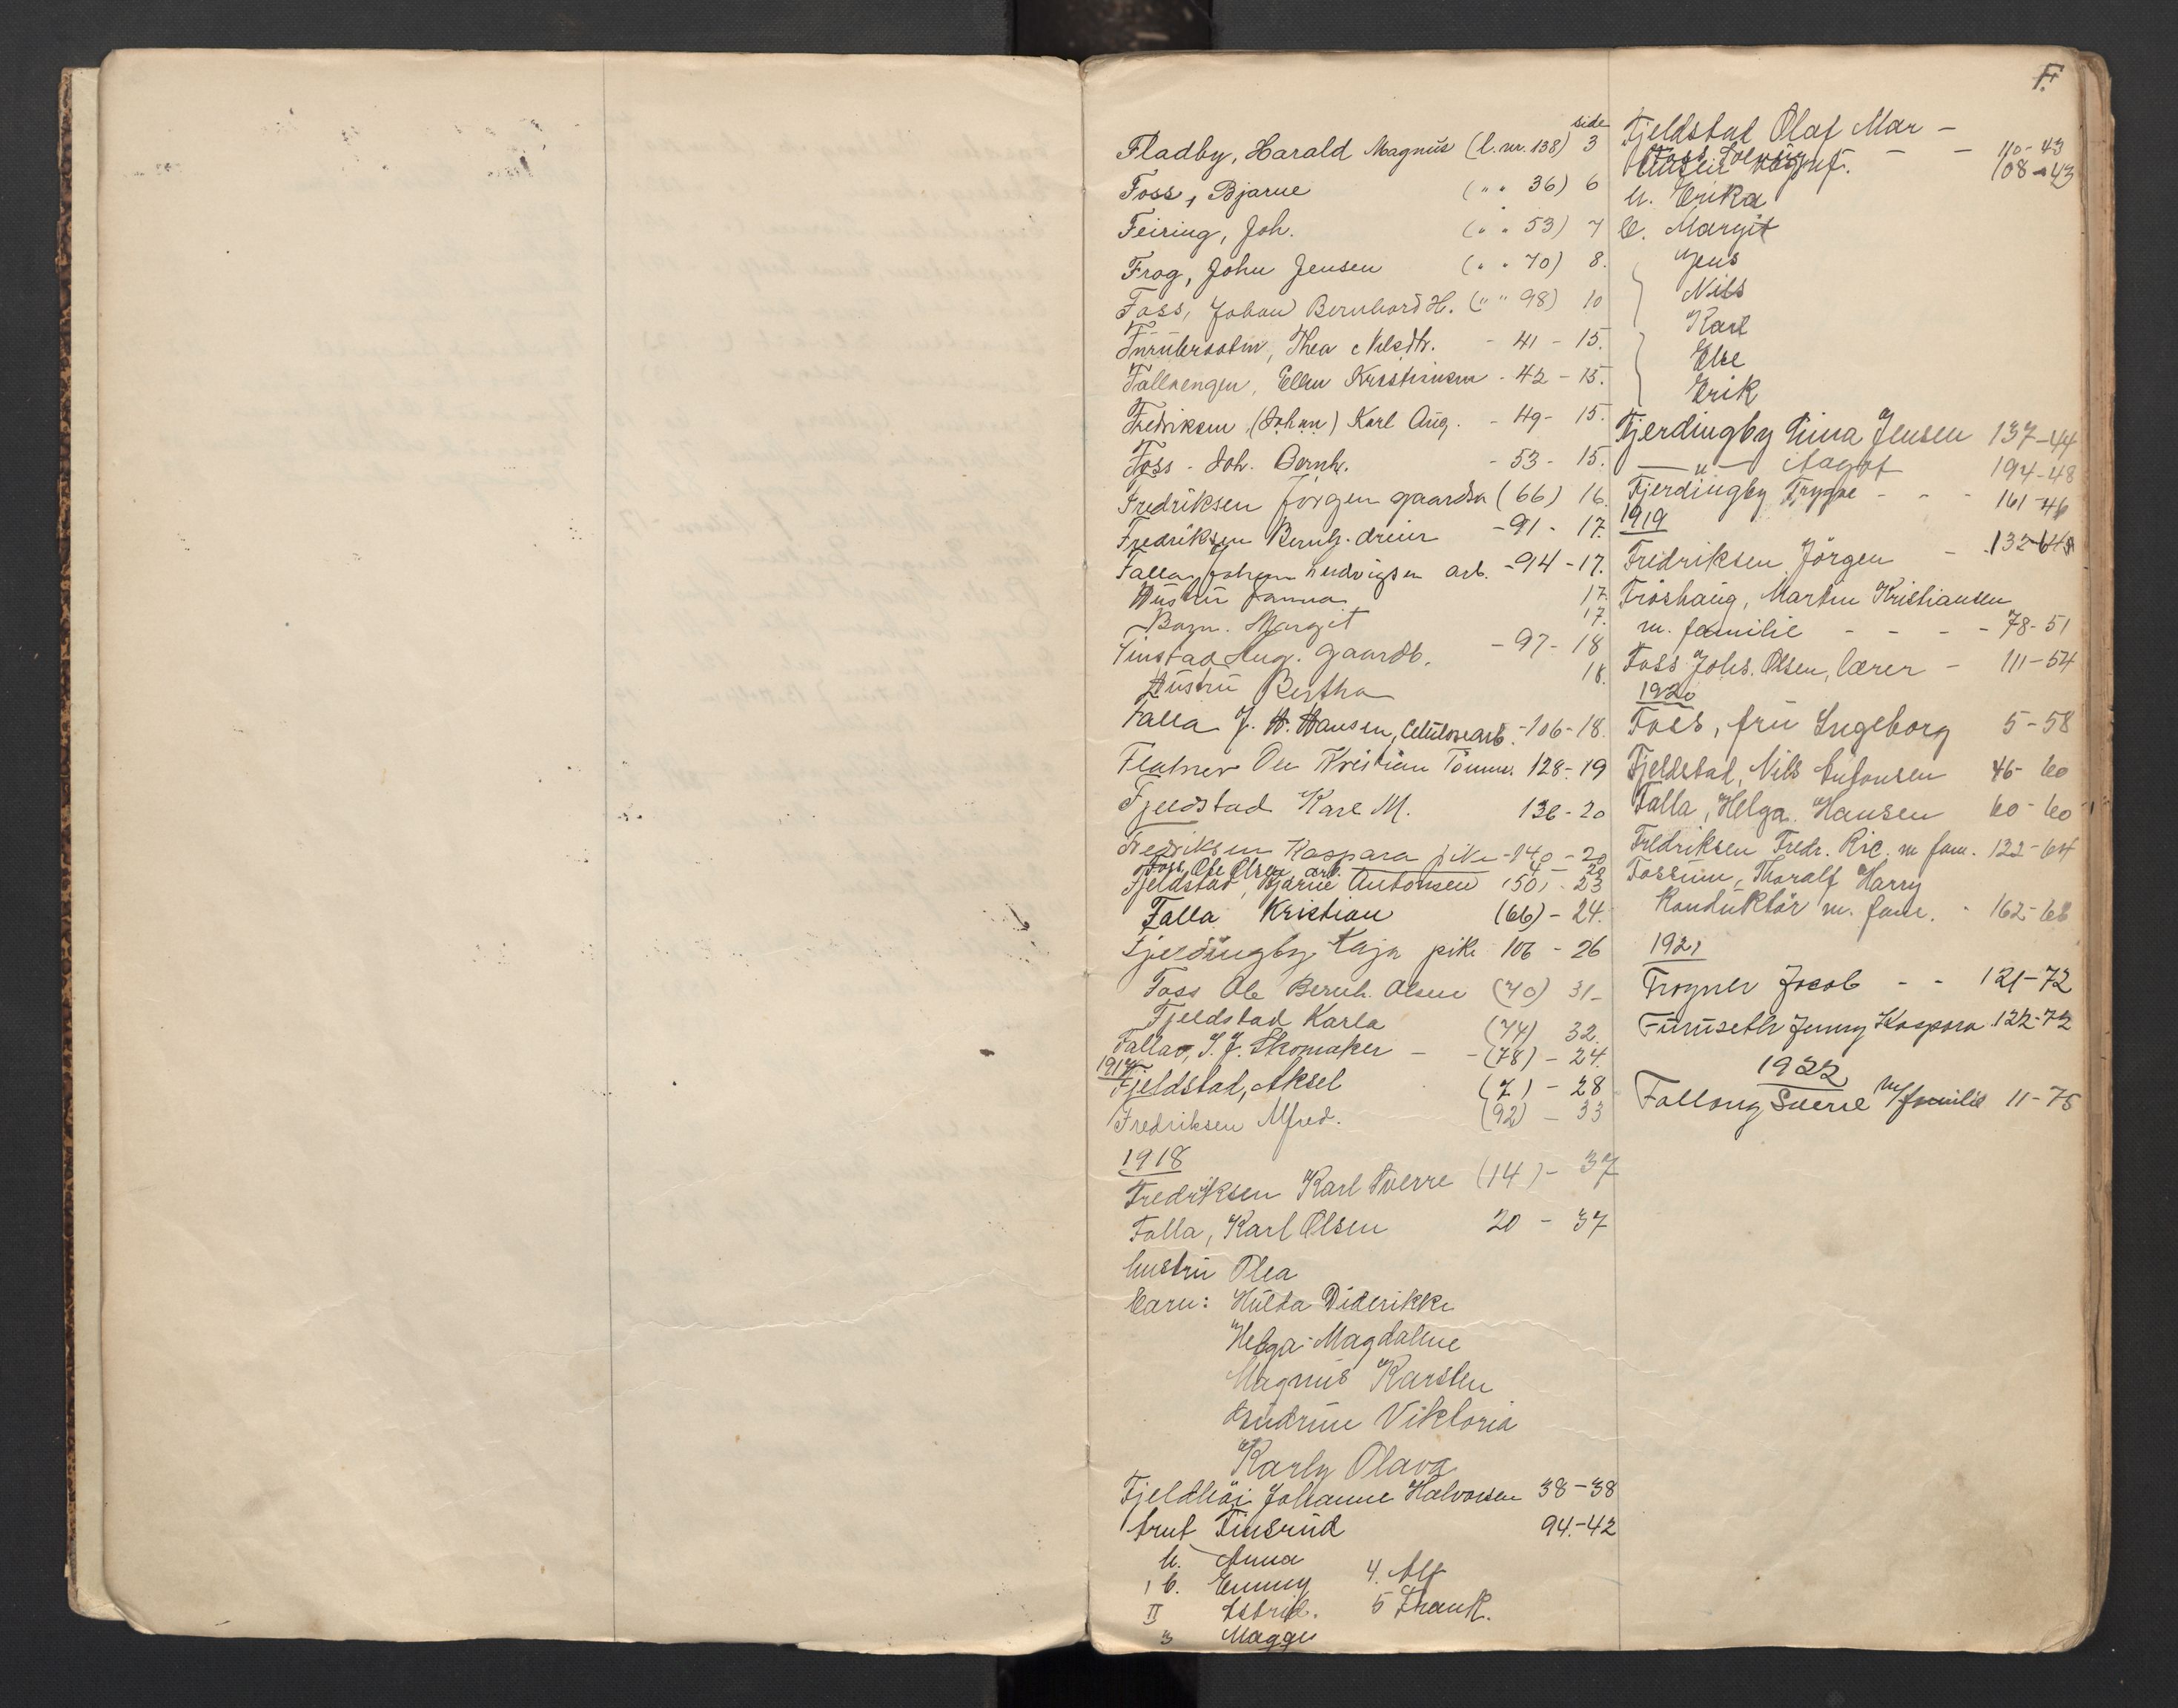 F.
side
Fladby, Harald Magnus (l.nr. 138) 3
Foss, Bjarne (" " 36) 6
Feiring, Joh. (" " 53) 7
Frog, John Jensen (" " 70) 8.
Foss, Johan Bernhard H. (" " 98) 10
Thea Nilsdtr. - 41 - 15.
Fallaengen, Ellen Kristiansen - 42 - 15.
Fredriksen, (Johan) Karl Aug. - 49 - 15.
Foss - Joh. Bernh. - 53 - 15.
Fredriksen Jörgen gaardsa (66) 16.
Fredriksen Bernh. dreier - 91 - 17.
Falla, Johan Ludvigsen arb. - 94 - 17.
Hustru Janna 17.
Barn. Margit 17.
Finstad Aug. gaardb. - 97 - 18
Hustru Bertha 18.
Falla J. H. Hansen, Celulosearb. - 106 - 18.
Flatner Ole Kristian Tömmr. 128 - 19
Fjeldstad Karl M. 136 - 20
Fredriksen Kaspara pike - 140 - 20
Foss, Ole Olsen, arb. 4 - 20
Fjeldstad, Bjarne Antonsen (50) - 23
Falla Kristian (66) - 24.
Fjerdingby Kaja pike 106 - 26
Foss Ole Bernh. Olsen (70) 31 -
Fjeldstad Karla (74) 32.
Falla, S. J. Skomaker - - (78) - 24.
1917
Fjeldstad, Aksel (7) - 28
Fredriksen Alfred. (92) - 33
1918
Fredriksen Karl Sverre (14) - 37
Falla, Karl Olsen 20 - 37
hustru Thea
barn: Hulda Diderikke
Helga Magdalene
Magnus Karsten
Gudrun Viktoria
Karly Olava
Fjeldhöi Johanne Halvorsen 38 - 38
Arut Finsrud 94. - 42
h. Anna
1 b. Emmy 4. Alf
II Astrid. 5 Frank.
3 Magge
Fjeldstad Olaf Mar -
Foss - - 110 - 43
108 - 43
h. Erika
b. Margit
Jens
Nils
Karl
Else
Erik
Fjerdingby Lina Jensen 137 - 44
— " — Aagot 194 - 48
Fjerdingby Trygve - - - 161 - 46
1919
Fredriksen Jörgen - 132 -
Fröshaug, Martin Kristiansen
m. familie - - - - 78 - 51
Foss Johs. Olsen, lærer - 111 - 54
1920
Foss, fru Ingeborg 5 - 58
Fjeldstad, Nils Antonsen 46 - 60
Falla, Helga Hansen 60 - 60
Fredriksen Fredr. Ric. m fam. 122 - 64
Fossum, Thoralf Harry
Konduktör m. fam. - 162 - 68
1921
Frogner Jacob - - 121 - 72
Furuseth Jenny Kaspara 122 - 72
1922
Fallang Sverre m/familie 11 - 75